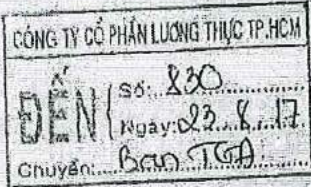 CÔNG TY CỔ PHẦN LƯƠNG THỰC TP.HCM
ĐẾN
Số: 830
Ngày: 23.8.17
Chuyển: Ban TGĐ